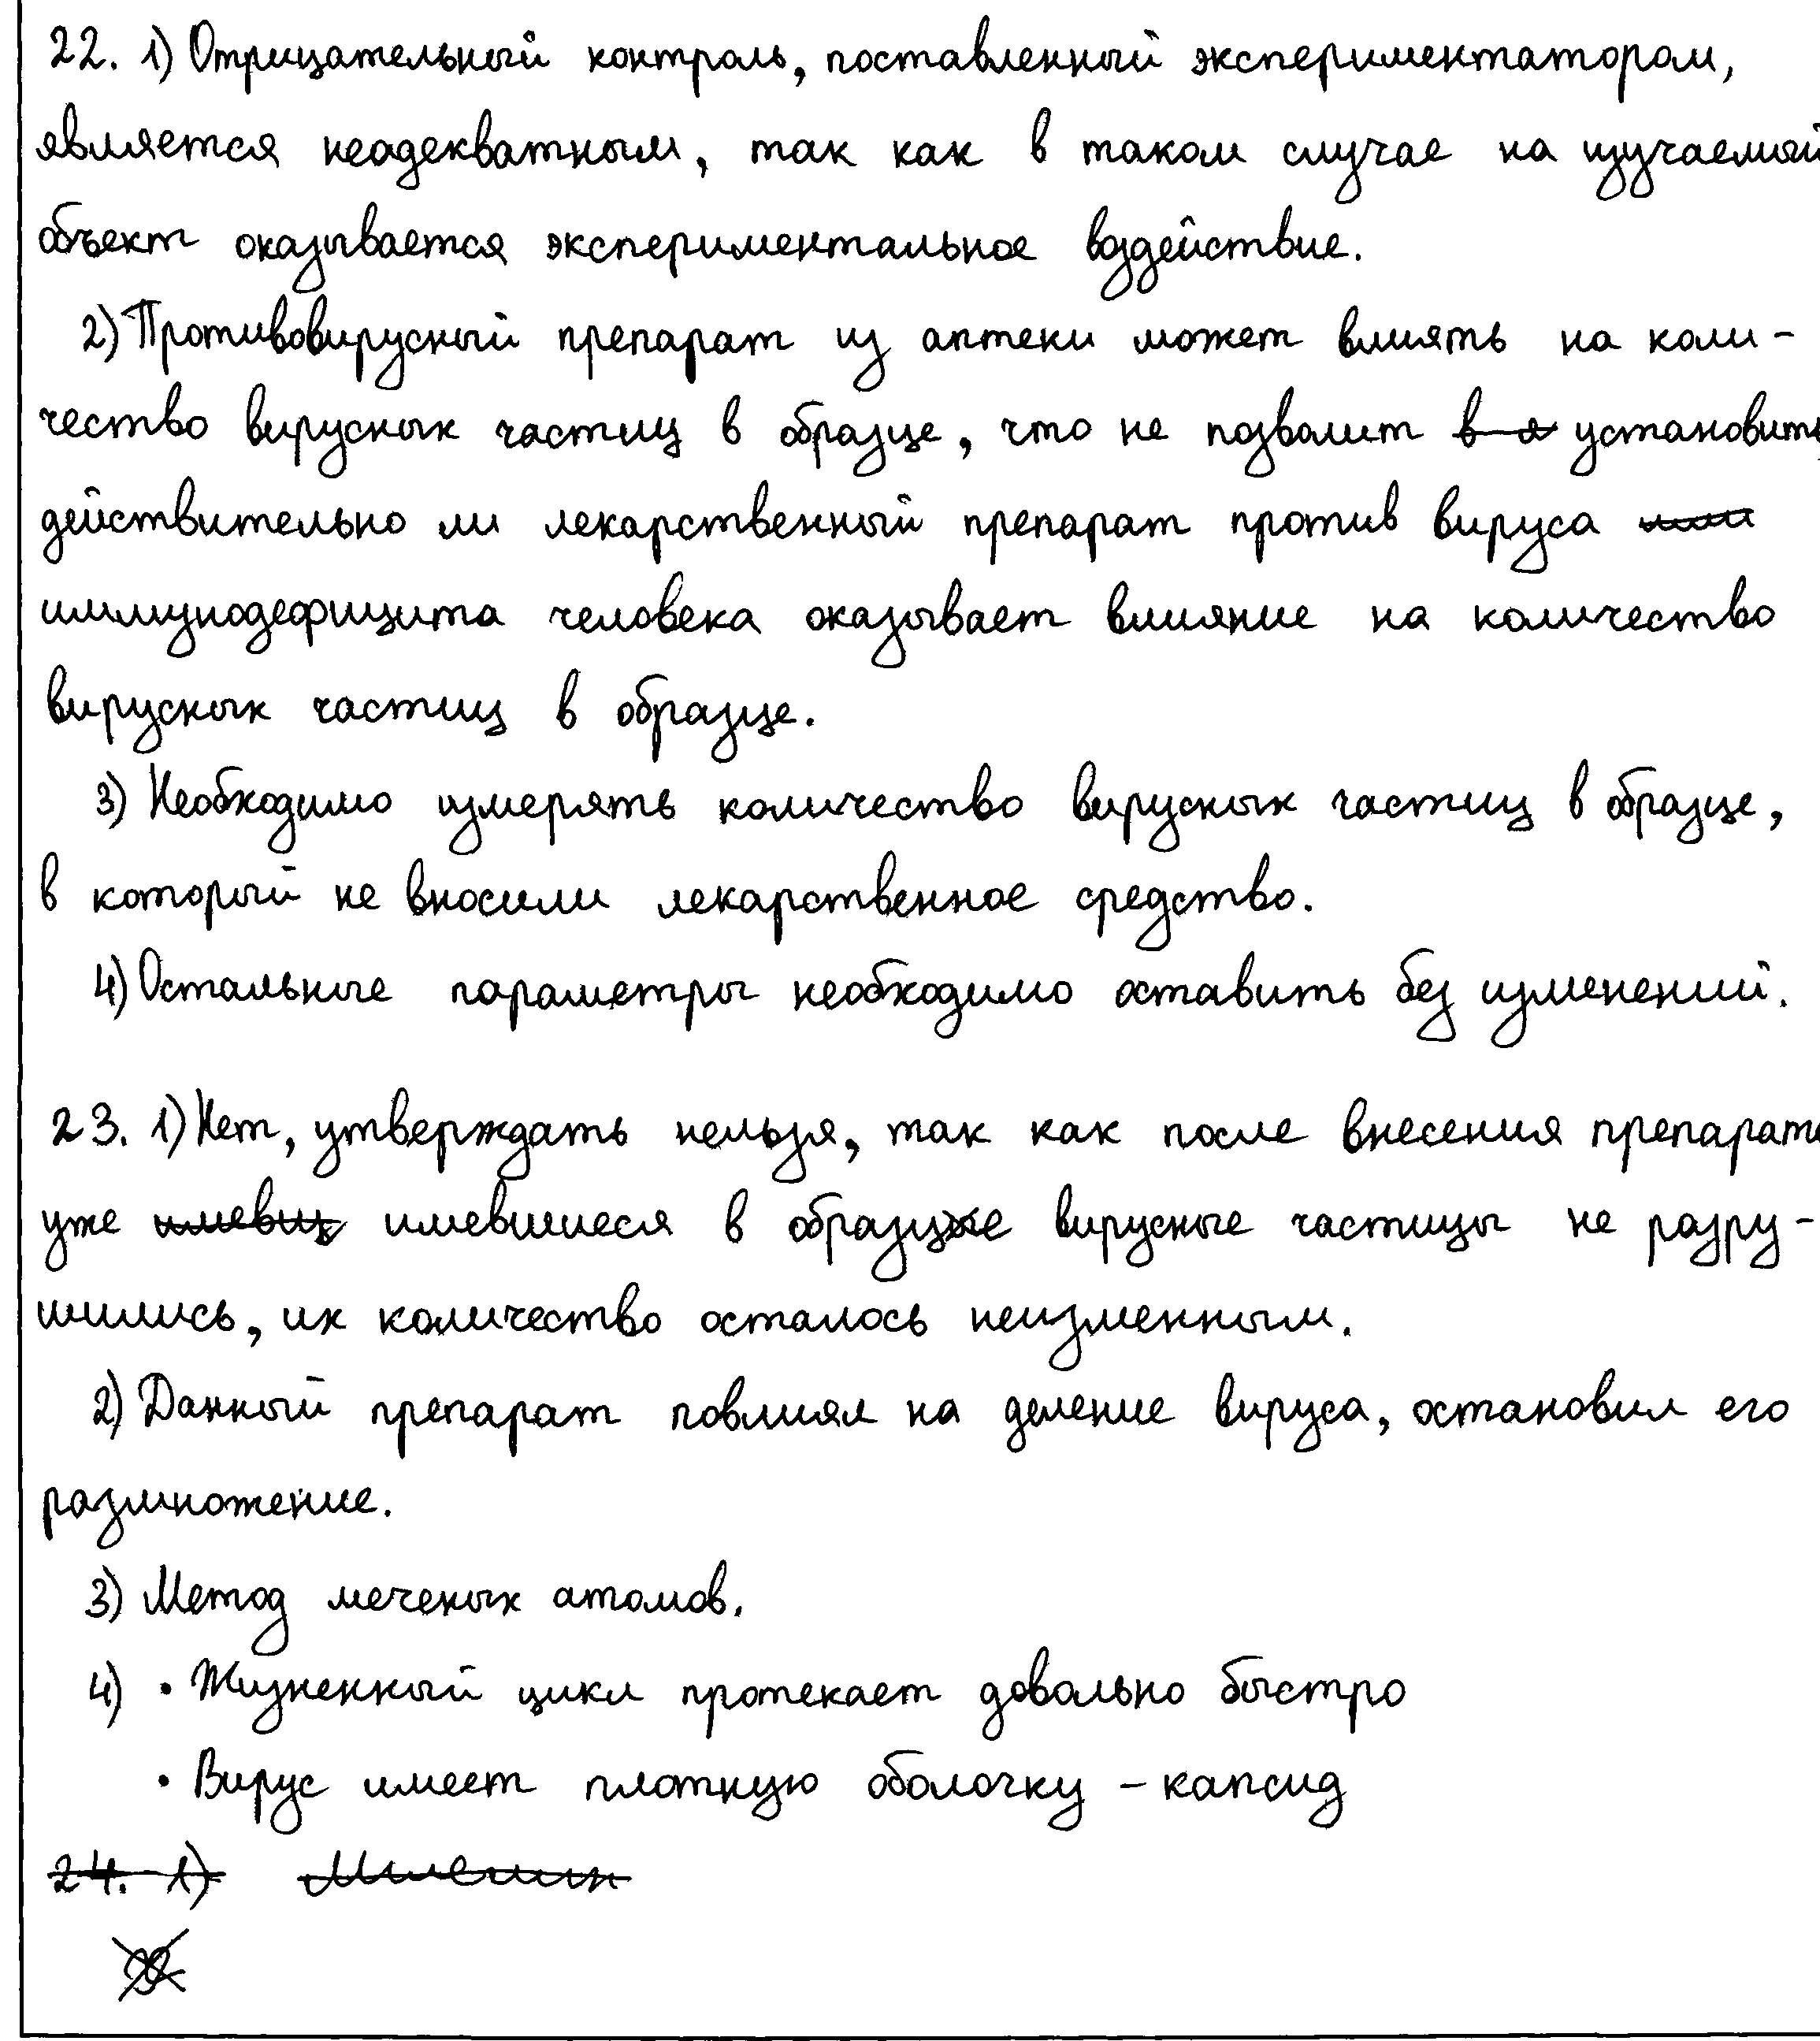 22. 1) Отрицательный контроль, поставленный экспериментатором,
является неадекватным, так как в таком случае на изучаемый
объект оказывается экспериментальное воздействие.
2) Противовирусный препарат из аптеки может влиять на коли-
чество вирусных частиц в образце, что не позволит установить,
действительно ли лекарственный препарат против вируса
иммунодефицита человека оказывает влияние на количество
вирусных частиц в образце.
3) Необходимо измерять количество вирусных частиц в образце,
в который не вносили лекарственное средство.
4) Остальные параметры необходимо оставить без изменений.
23. 1) Нет, утверждать нельзя, так как после внесения препарата
уже имевшиеся в образце вирусные частицы не разру-
шились, их количество осталось неизменным.
2) Данный препарат повлиял на деление вируса, остановил его
размножение.
3) Метод меченых атомов.
4) • Жизненный цикл протекает довольно быстро
• Вирус имеет плотную оболочку - капсид
24. 1)